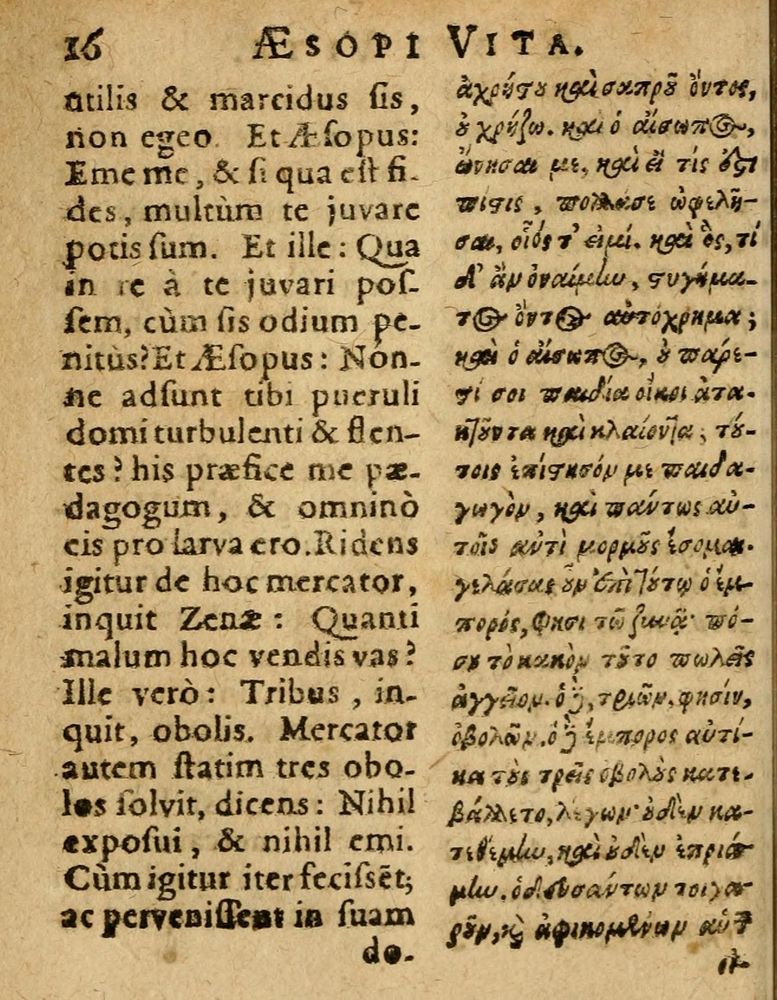 16 ÆSOPI VITA.
utilis & marcidus ſis,
non egeo. Et Æſopus:
Eme me, & ſi qua eſt fi-
des, multùm te juvare
potis ſum. Et ille: Qua
in re à te juvari poſ-
ſem, cùm ſis odium pe-
nitùs? Et Æſopus: Non-
ne adſunt tibi pueruli
domi turbulenti & flen-
tes? his præfice me pæ-
dagogum, & omninò
eis pro larva ero. Ridens
igitur de hoc mercator,
inquit Zenæ: Quanti
malum hoc vendis vas?
Ille verò: Tribus, in-
quit, obolis. Mercator
autem ſtatim tres obo-
los ſolvit, dicens: Nihil
expoſui, & nihil emi.
Cùm igitur iter feciſſēt;
ac perveniſſent in ſuam
do-
ἀχρήςου καὶ σαπροῦ ὄντος,
ȣ χρῄζω. καὶ ὁ αἴσωπος,
ὤνησαι με, καὶ εἴ τίς ἐςι
πίςις, πολλά σε ὠφελῆ-
σαι, οἷός τ' εἰμί. καὶ ὃς, τί
δ' ἂν ὀναίμην, ςυγήμα-
τος ὄντος αὐτόχρημα;
καὶ ὁ αἴσωπος, ȣ πάρε-
ςί σοι παιδία οἴκοι ἀτα-
κτοῦντα καὶ κλαίοντα; τού-
τοις ἐπίςησόν με παιδα-
γωγὸν, καὶ πάντως αὐ-
τοῖς ἀντὶ μορμοῦς ἔσομαι.
γελάσας οὖν ἐπὶ τούτῳ ὁ ἔμ-
πορος, φησὶ τῷ ζηνᾷ· πό-
σου τὸ κακὸν τοῦτο πωλεῖς
ἀγγεῖον. ὁ δὲ, τριῶν, φησὶν,
ὀβολῶν. ὁ δὲ ἔμπορος αὐτί-
κα τοὺς τρεῖς ὀβολοὺς κατε-
βάλλετο, λέγων· οὐδὲν κα-
τεθέμην, καὶ οὐδὲν ἐπριά-
μην. ὁδευσάντων τοιγα-
ροῦν, καὶ ἀφικομένων αὐτ